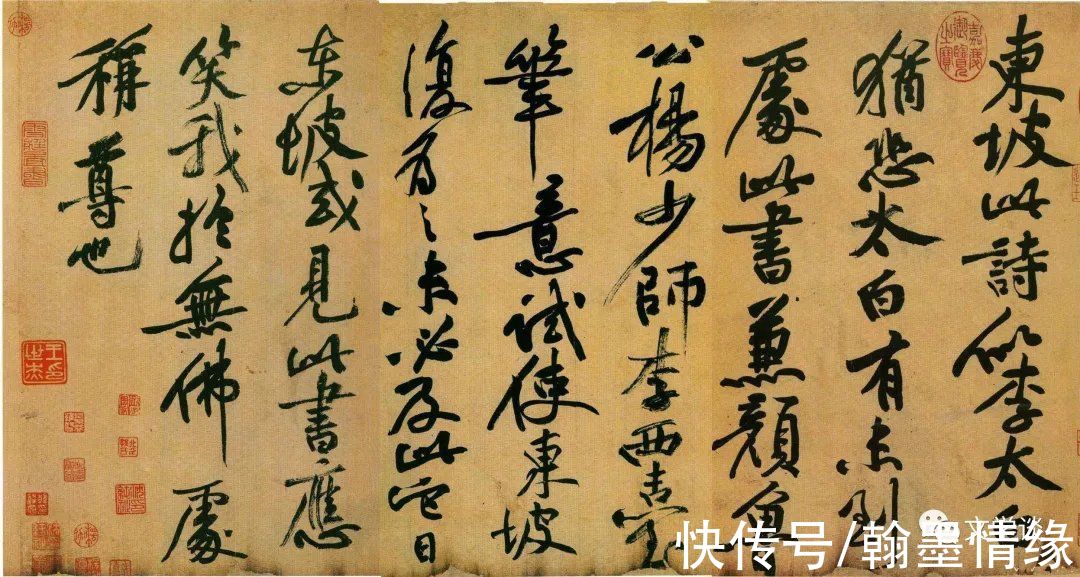 東坡此詩似李太白
猶恐太白有未到
處此書兼顏魯
公楊少師李西臺
筆意試使東坡
復為之未必及此它日
東坡或見此書應
笑我於無佛處
稱尊也
嘉慶御覽之寶
快传号/翰墨情缘